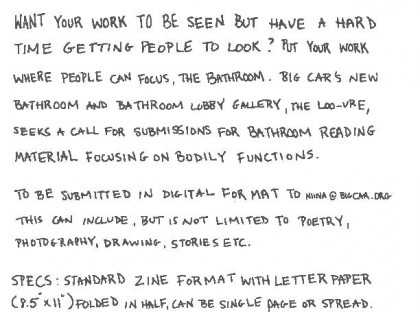 WANT YOUR WORK TO BE SEEN BUT HAVE A HARD
TIME GETTING PEOPLE TO LOOK? PUT YOUR WORK
WHERE PEOPLE CAN FOCUS, THE BATHROOM. BIG CAR'S NEW
BATHROOM AND BATHROOM LOBBY GALLERY, THE LOO-VRE,
SEEKS A CALL FOR SUBMISSIONS FOR BATHROOM READING
MATERIAL FOCUSING ON BODILY FUNCTIONS.
TO BE SUBMITTED IN DIGITAL FORMAT TO NIINA@BIGCAR.ORG
THIS CAN INCLUDE, BUT IS NOT LIMITED TO POETRY,
PHOTOGRAPHY, DRAWING, STORIES ETC.
SPECS: STANDARD ZINE FORMAT WITH LETTER PAPER
(8.5" x 11") FOLDED IN HALF, CAN BE SINGLE PAGE OR SPREAD.